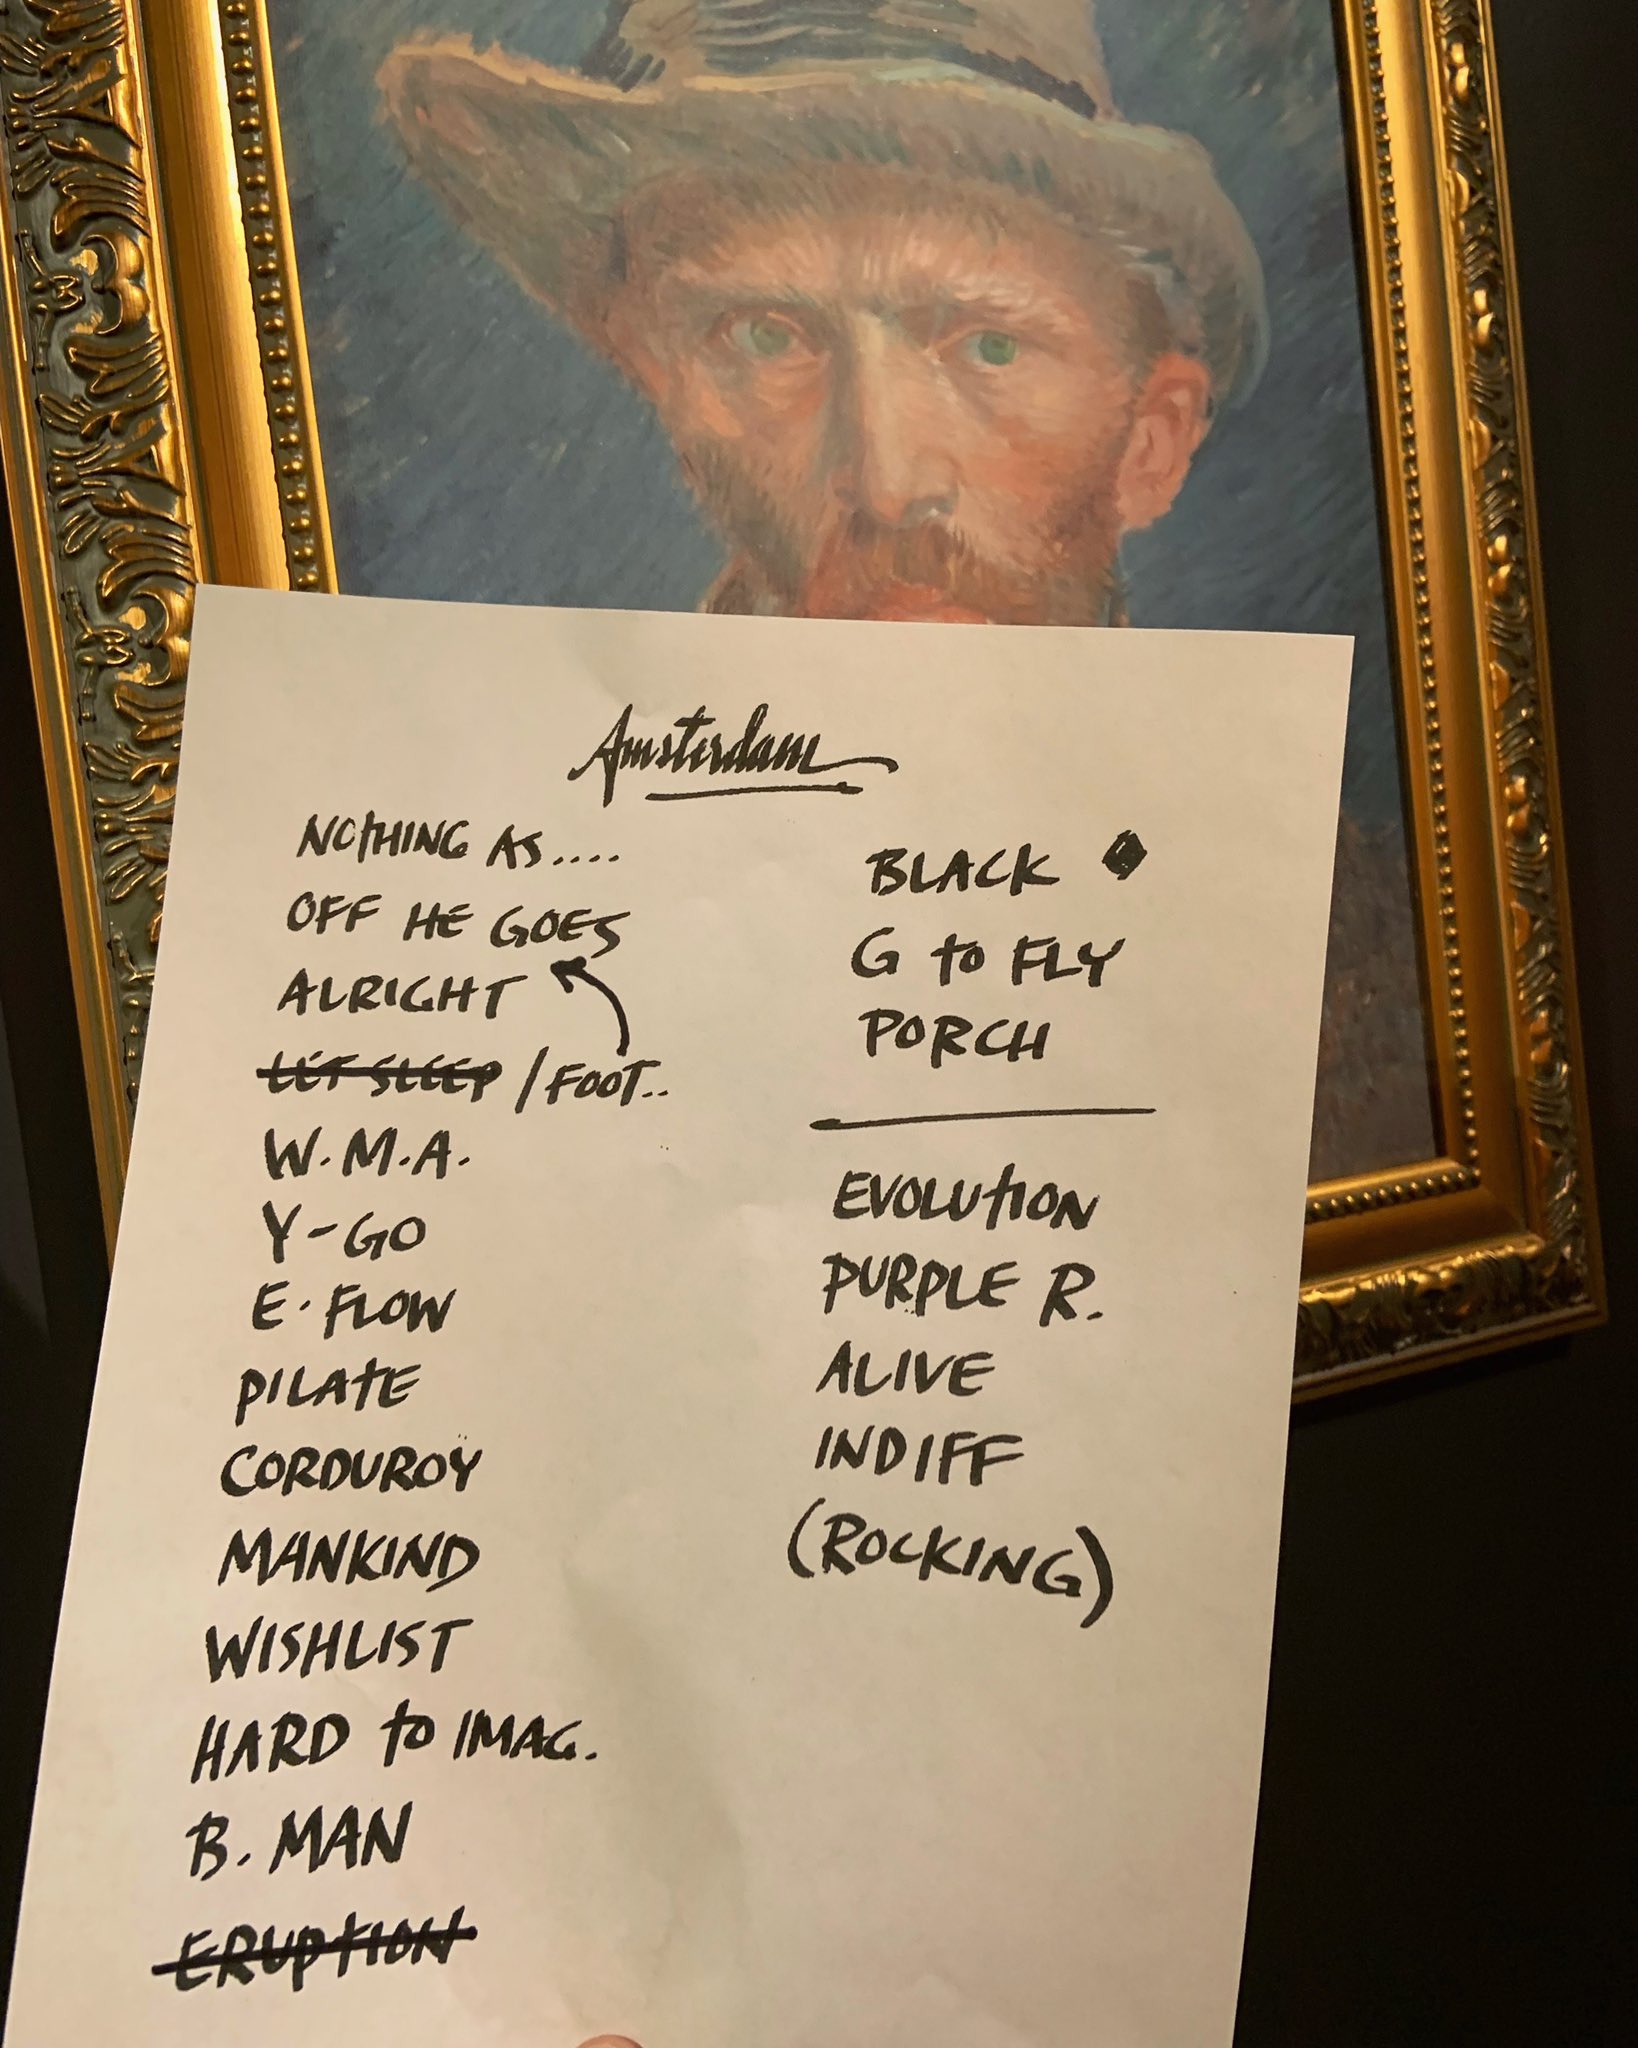 Amsterdam
NOTHING AS....
OFF HE GOES
ALRIGHT
LET SLEEP / FOOT..
W.M.A.
Y-GO
E. FLOW
PILATE
CORDUROY
MANKIND
WISHLIST
HARD to IMAG.
B. MAN
ERUPTION
BLACK
G to FLY
PORCH
EVOLUTION
PURPLE R.
ALIVE
INDIFF
(ROCKING)